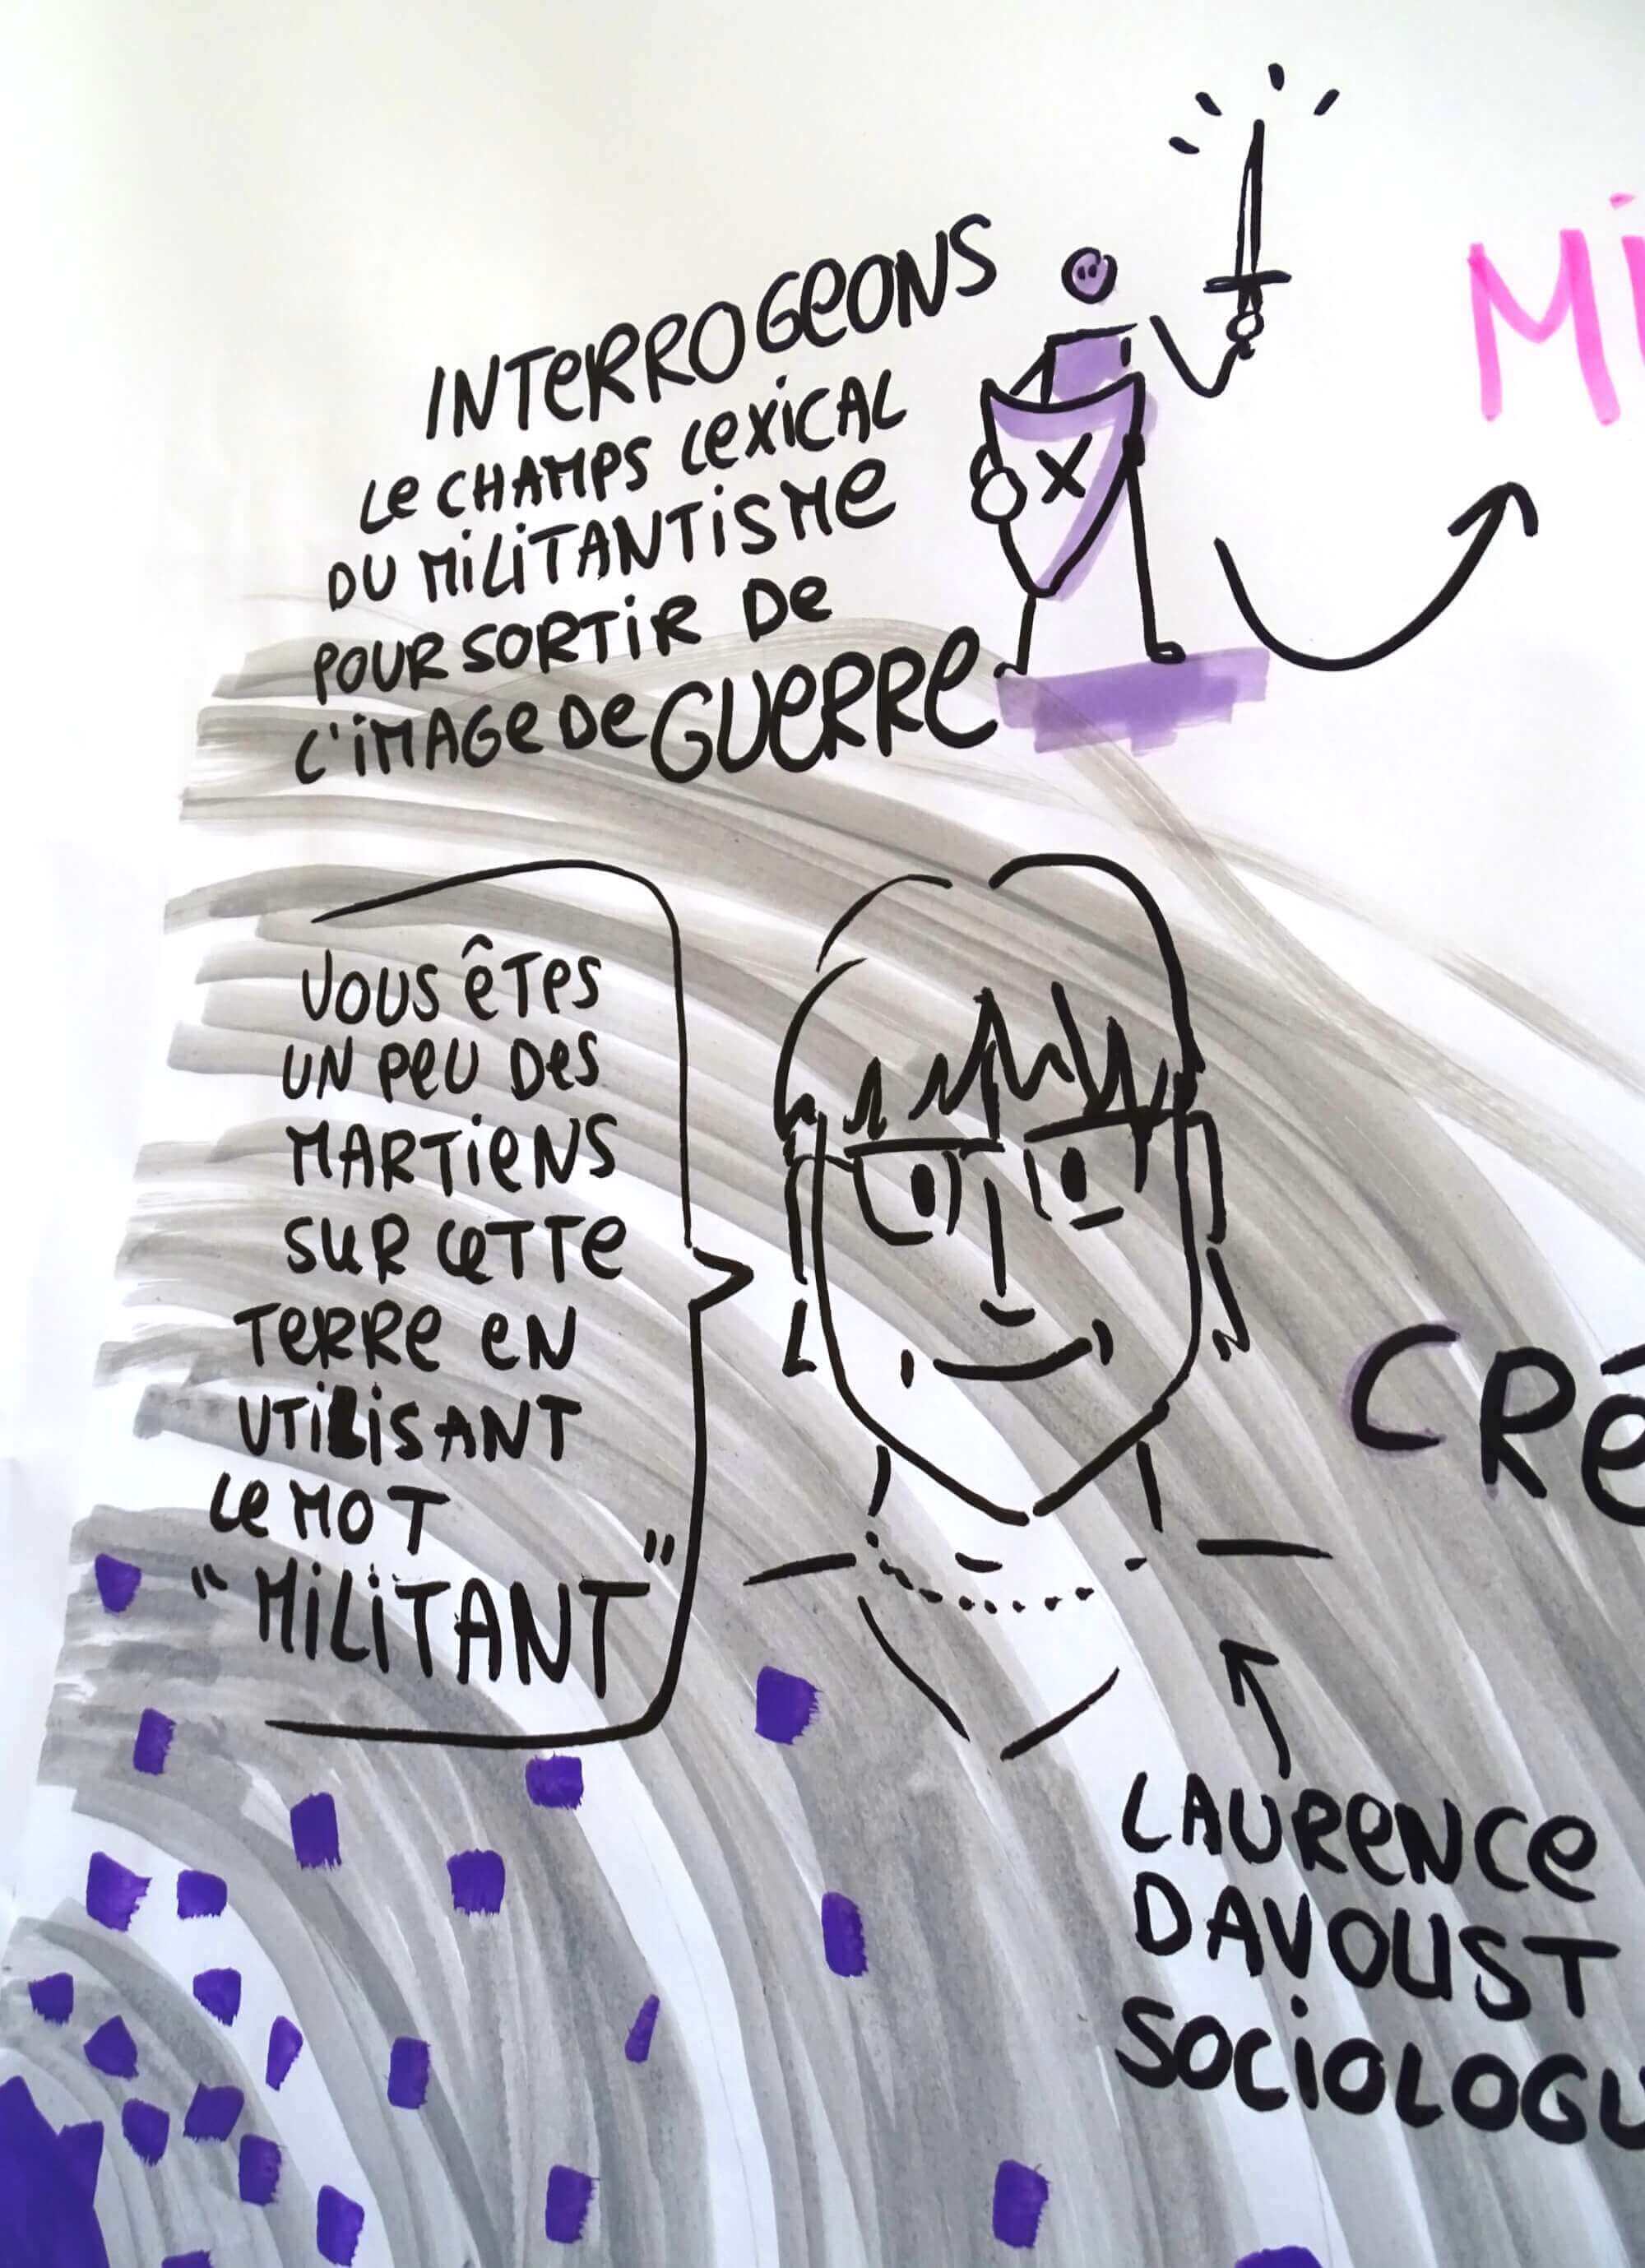 INTERROGEONS
Le CHAMPS LeXiCAL
DU MiLiTANTiSMe
POUR SORTiR De
L'iMAGe De GUeRRe
Mi
VOUS êTes
UN Peu Des
MARTieNS
SUR CeTTe
TeRRe eN
UTiLiSANT
Le MOT
"MiLiTANT"
CRé
LAUReNCe
DAVOUST
SOCiOLOGU